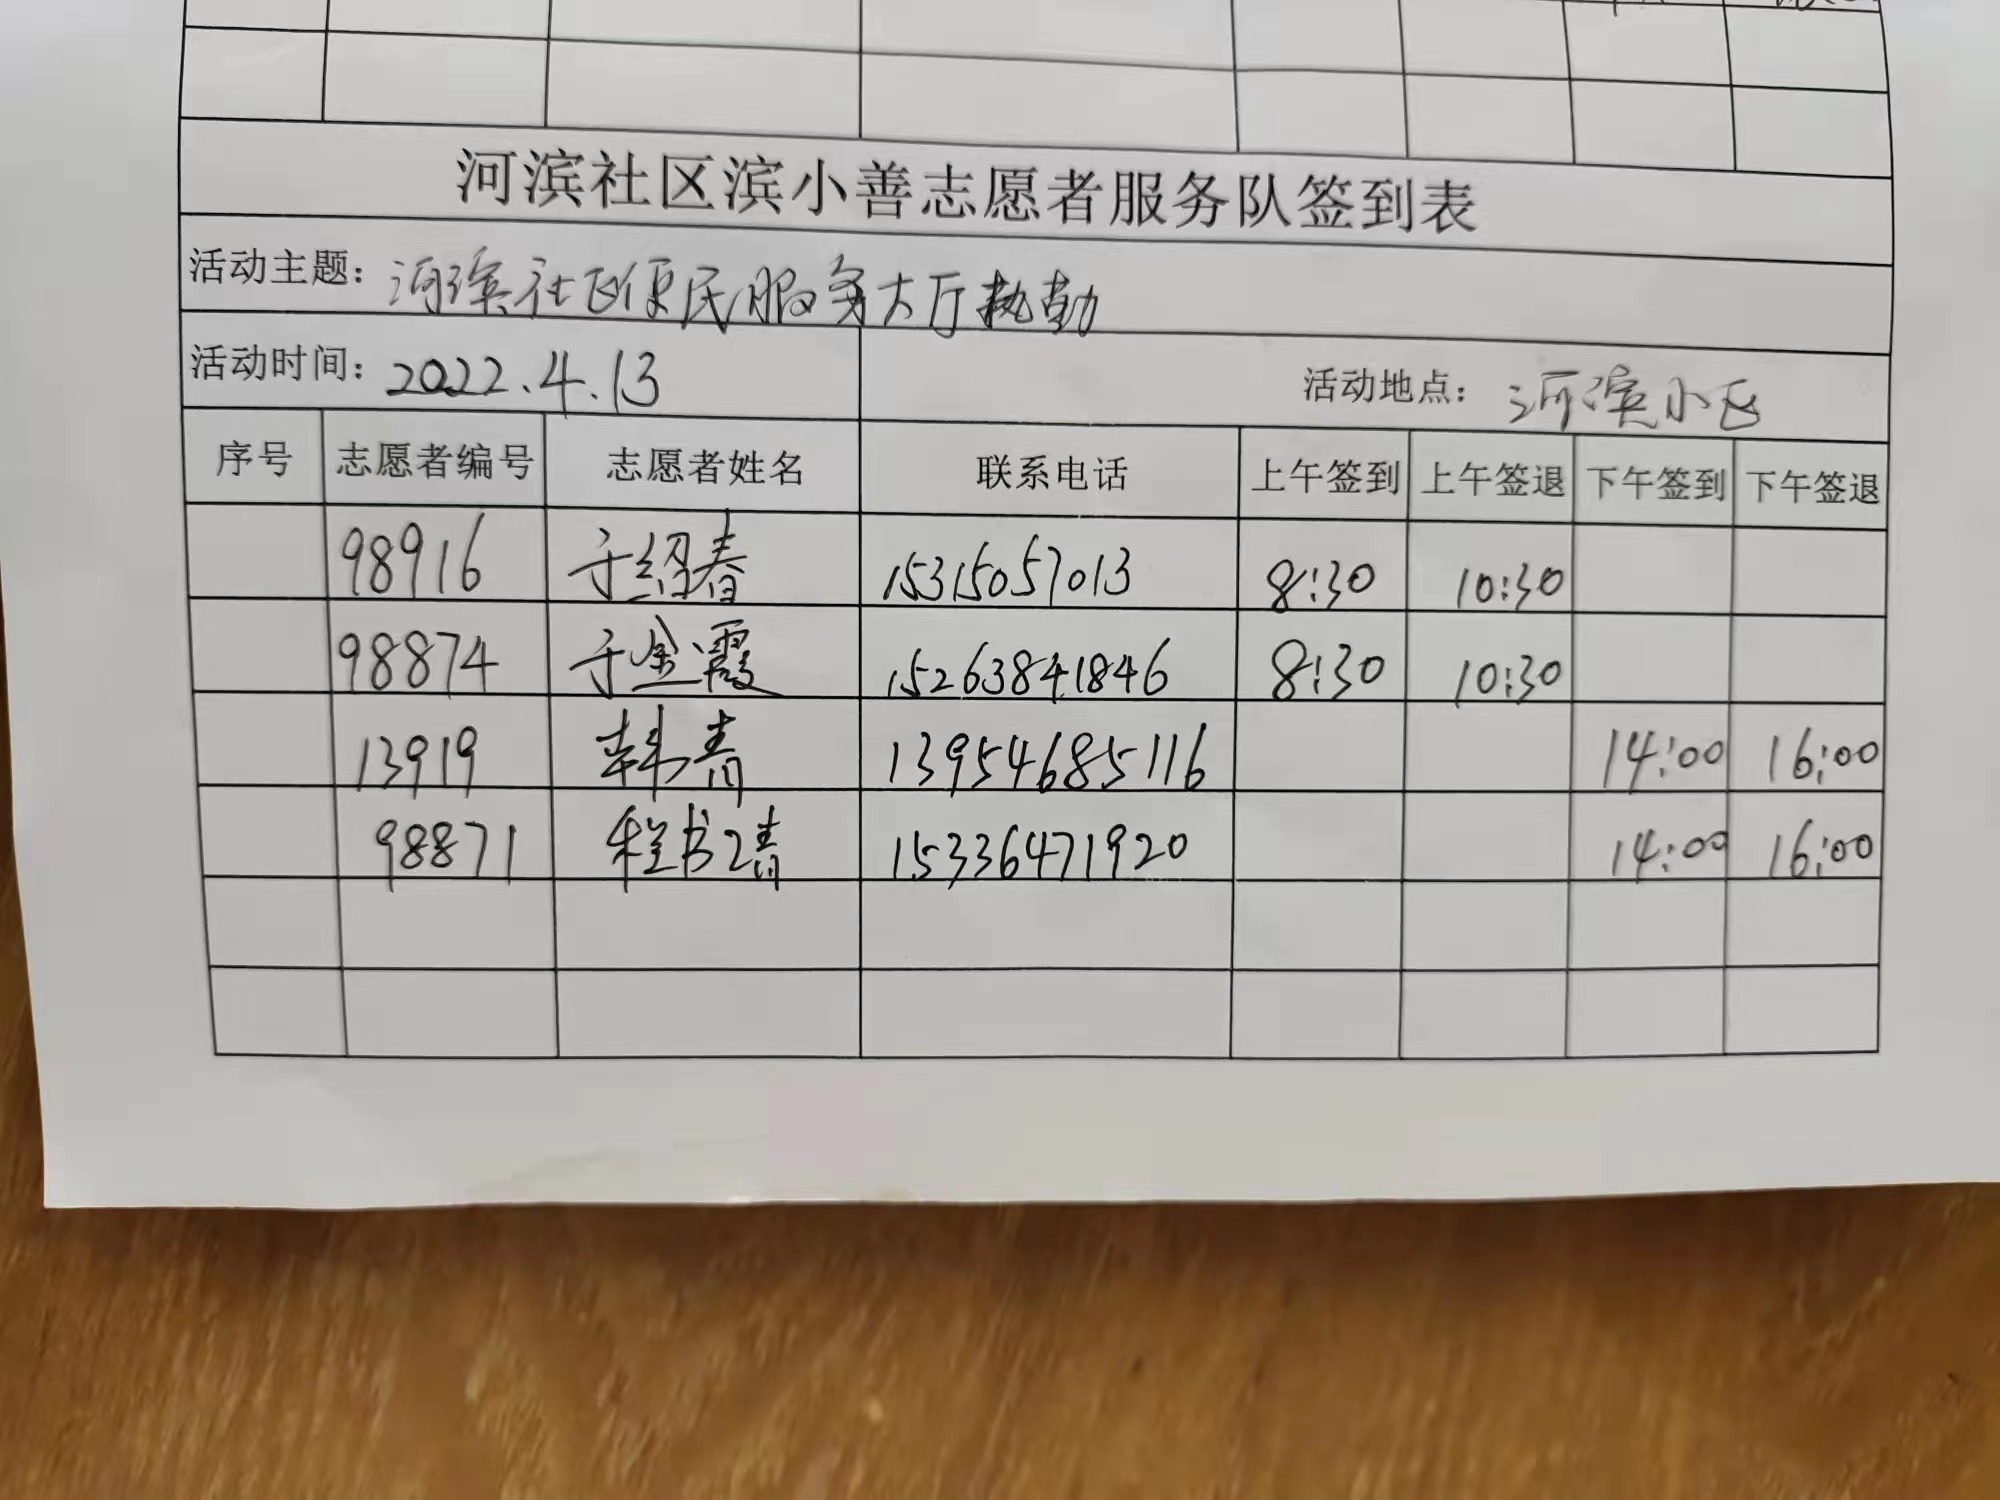 河滨社区滨小善志愿者服务队签到表
活动主题：河滨社区便民服务大厅执勤
活动时间：2022.4.13 活动地点：河滨小区
序号 志愿者编号 志愿者姓名 联系电话 上午签到 上午签退 下午签到 下午签退
98916 于绍春 15315057013 8:30 10:30
98874 于金霞 15263841846 8:30 10:30
13919 韩青 13954685116 14:00 16:00
98871 程书清 15336471920 14:00 16:00